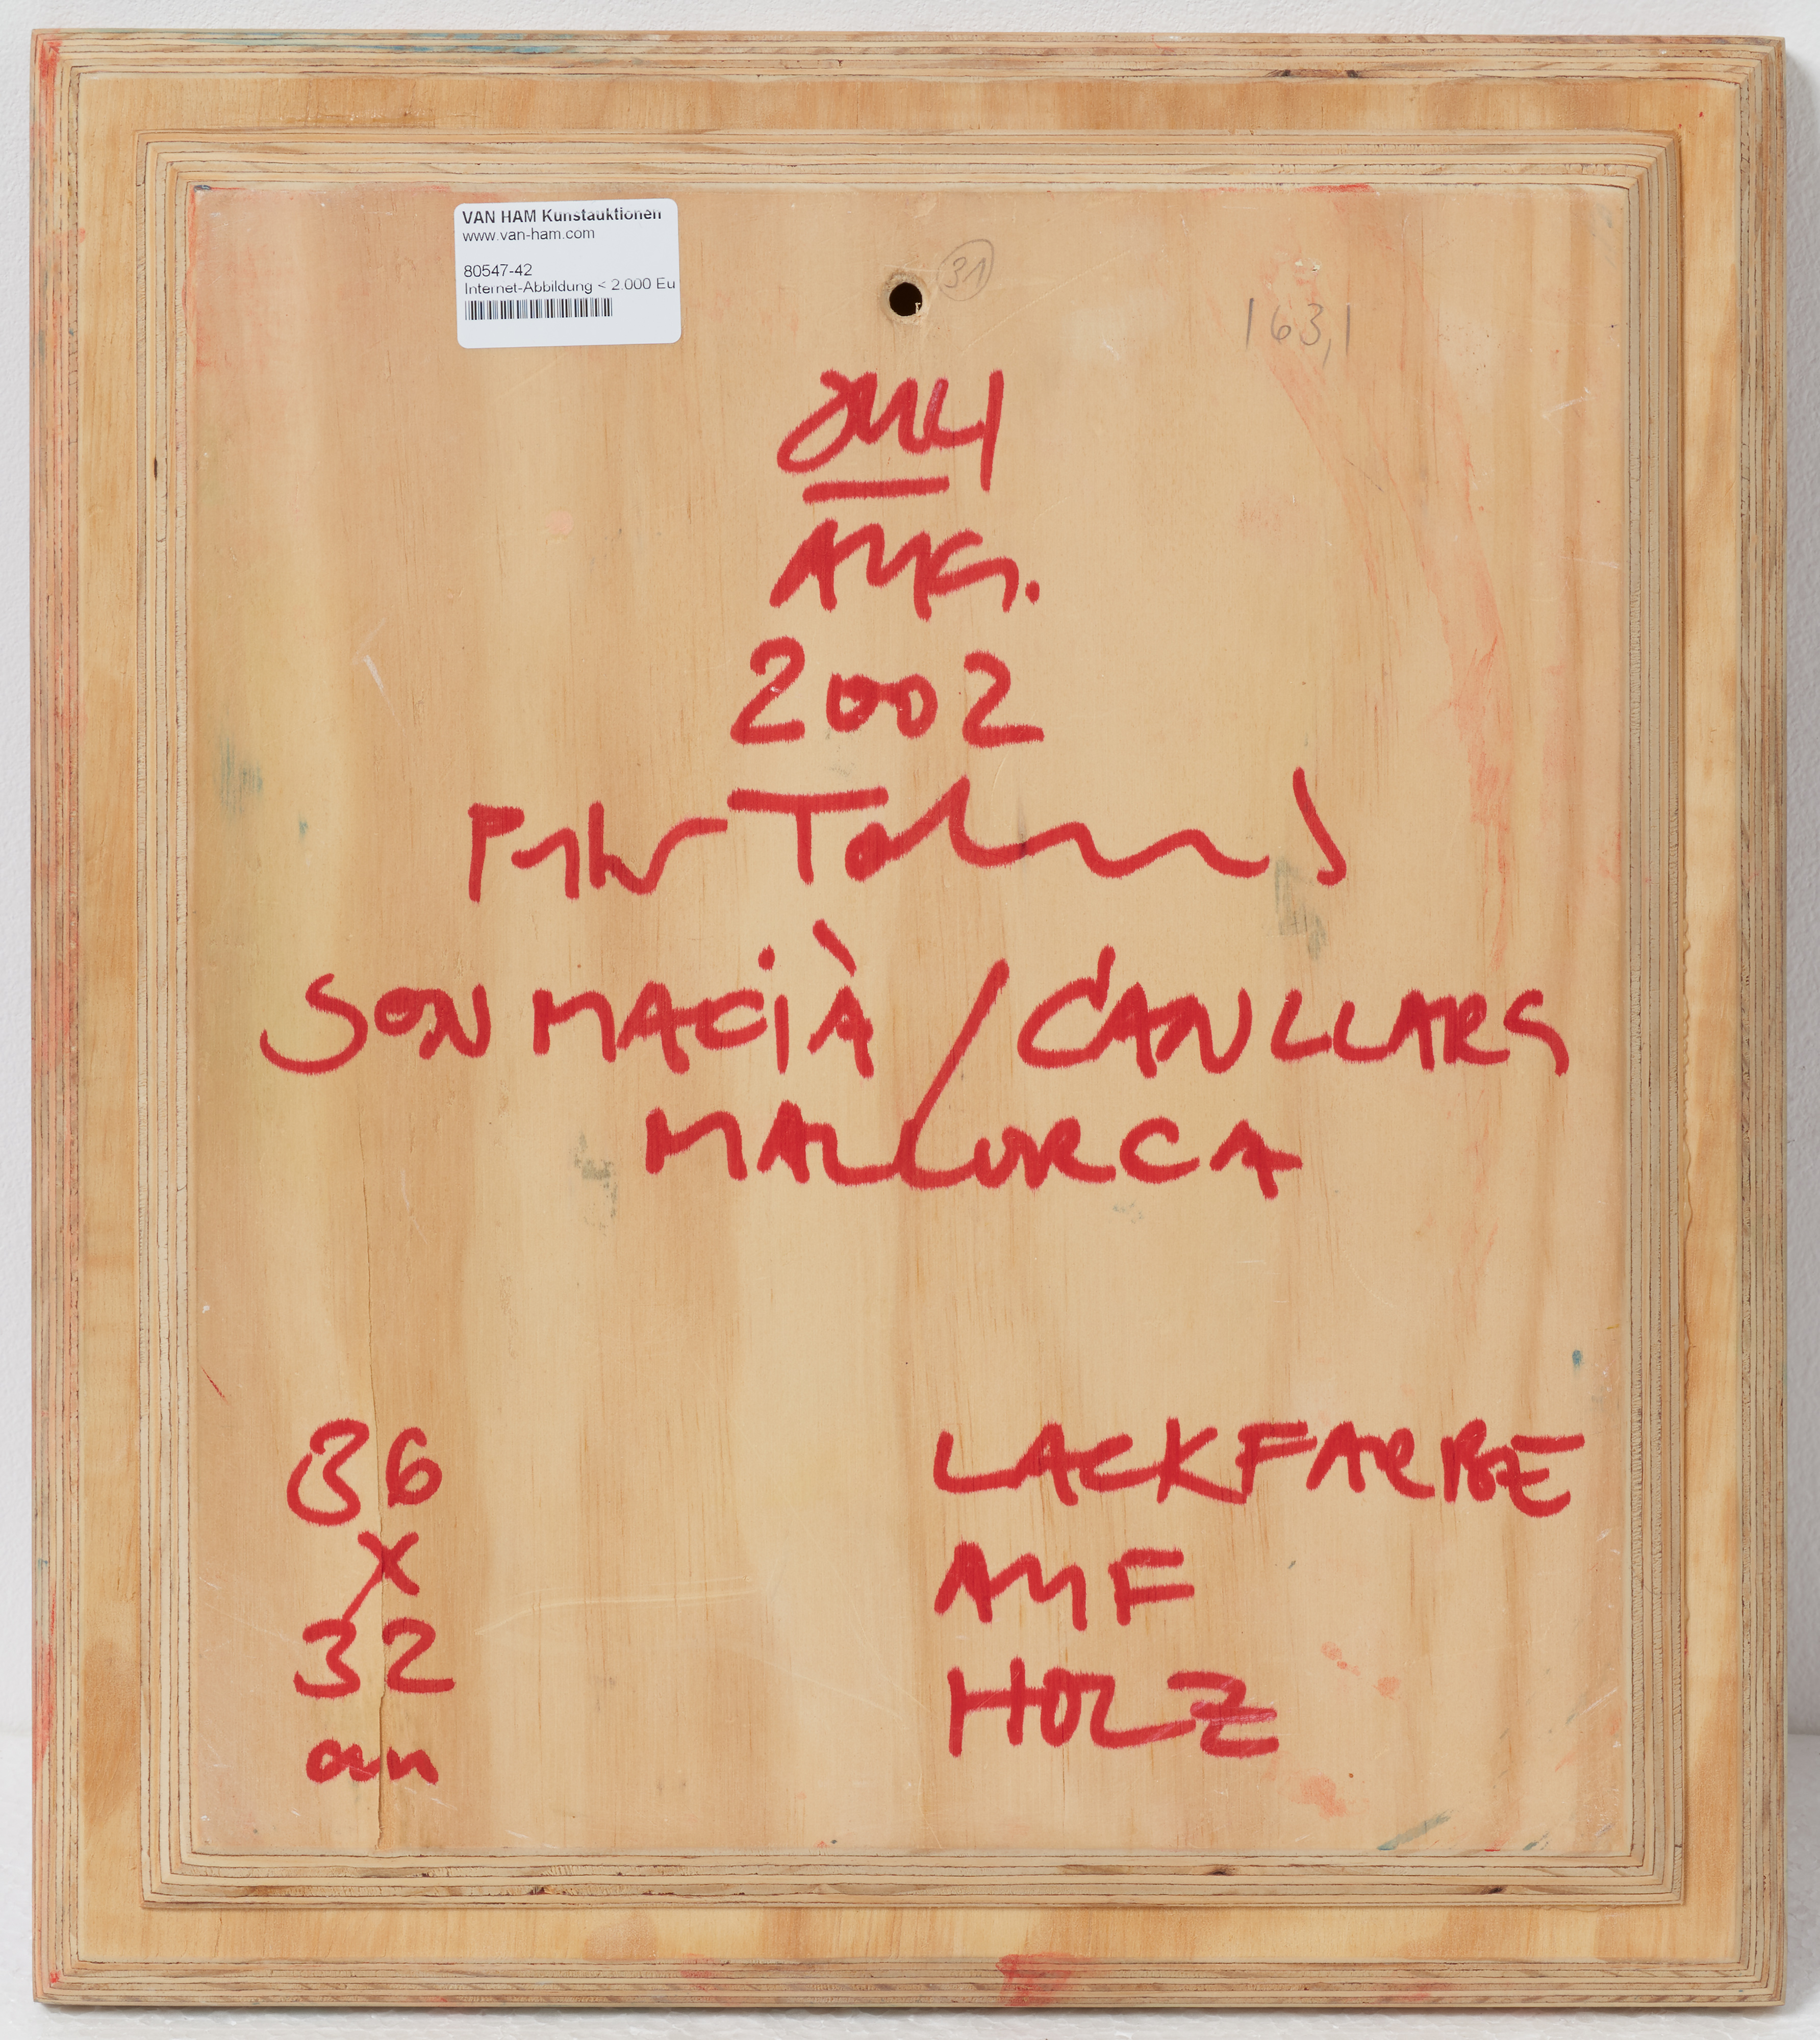 VAN HAM Kunstauktionen
www.van-ham.com
80547-42
Internet-Abbildung < 2.000 Eu
31
163,1
JULI
AUG.
2002
SON MACIÀ / C'AN LLARS
MALLORCA
36
X
32
cm
LACKFARBE
AUF
HOLZ